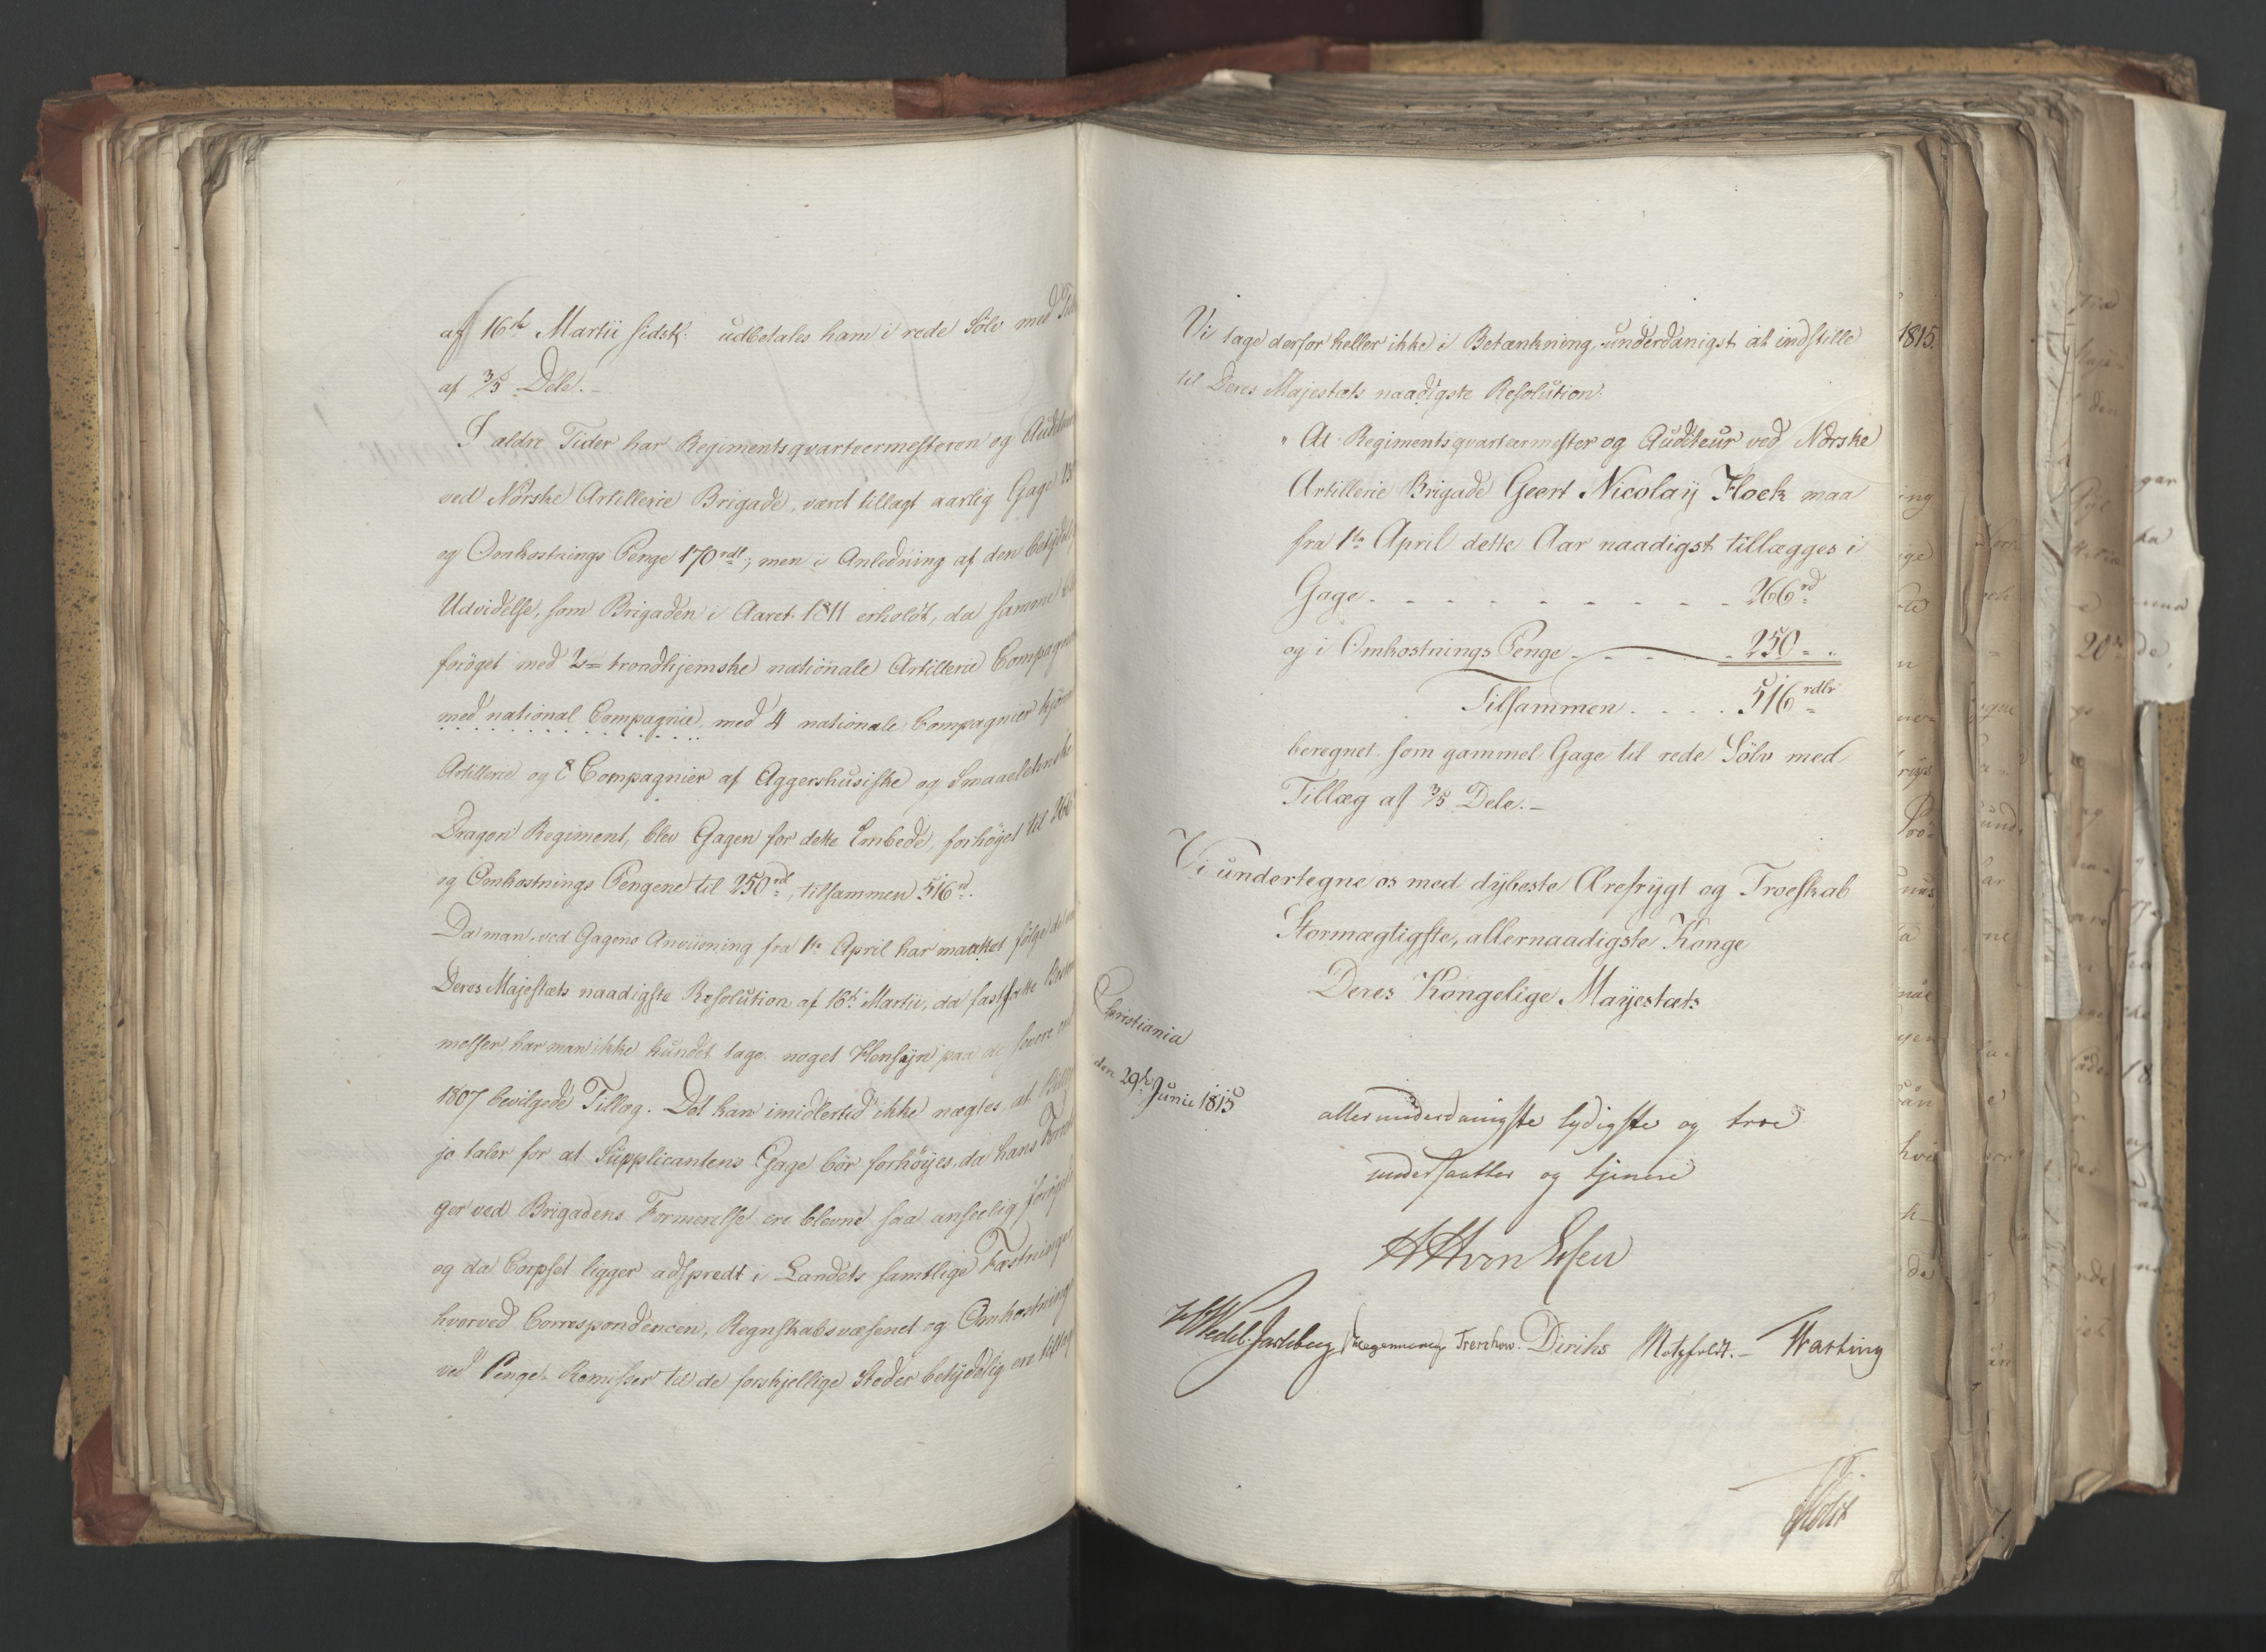 af 16de Martii sidstl: udbetales ham i rede Sölv med
af 3/5 Dele.
I ældre Tider har Regimentsqvarteermesteren og Auditeu
ved Norske Artillerie Brigade, været tillagt aarlig Gage 13
og Omkostnings Penge 170 rdl:; men i Anledning af den betyde
Udvidelse, som Brigaden i Aaret 1811 erholdt, da samme
forøget med 2de trondhjemske nationale Artillerie Compagni
med national Compagnie, med 4 nationale Compagnier kjör
Artillerie og 8 Compagnier af Aggershusiske og Smaalehnske
Dragon Regiment, blev Gagen for dette Embede, forhöyet til 266
og Omkostnings Pengene til 250 rdl, tilsammen 516 rd.
Da man, ved Gagens Anviisning fra 1te April har maattet fölge de
Deres Majestæts naadigste Resolution af 16de Martii, da fastsatte Bestem
melser, har man ikke kundet tage noget Hensyn paa de senere end
1807 bevilgede Tillæg. Det kan imidlertid ikke nægtes, at Billig
jo taler for at Supplicantens Gage bör forhöyes, da hans Forret
ger ved Brigadens Formerelse ere blevne saa anseelig forøget
og da Corpset ligger adspredt i Landets samtlige Fæstninger
hvorved Correspondencen, Regnskabsvæsenet og Omkostning
ved Penge-Remisser til de forskjellige Steder betydelig ere tiltag
1815.
Vi tage derfor heller ikke i Betænkning, underdanigst at indstille
til Deres Majestæts naadigste Resolution:
" At Regimentsqvarteermester og Auditeur ved Norske
Artillerie Brigade Geert Nicolaij Flock maa
fra 1te April dette Aar naadigst tillægges i
Gage - - - - - - - - - - 266 rd
og i Omkostnings Penge - - - - 250 - .
Tilsammen . . . . 516 rdlr
beregnet som gammel Gage til rede Sölv med
Tillæg af 3/5 Dele. -
Vi undertegne os med dybeste Ærefrygt og Troeskab
Stormægtigste, allernaadigste Konge
Deres Kongelige Mayestæts
Christiania
den 29de Junii 1815
allerunderdanigste lydigste og troe
undersaatter og tjenere
HHvon Essen
HWedel-Jarlsberg Hegermann Treschow. Diriks Motzfeldt. - Hasting
Holst